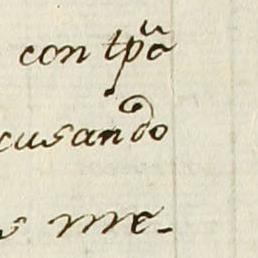 con tpõ
cusando
s me-